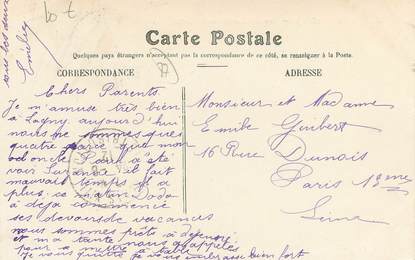 Carte Postale
Quelques pays étrangers n'acceptant pas la correspondance de ce côté, se renseigner à la Poste.
CORRESPONDANCE
ADRESSE
Chers Parents
Je m'amuse très bien
à Lagny, aujourd'hui
nous ne sommes que
quatre parce que mon
oncle Paul a été
voir il fait
mauvais temps il a
plu ce matin Dodo
a déjà commencé
ses devoirs de vacances
nous sommes prêts à déjeuner
et ma tante nous appelle
pour se mettre à table
Je vous quitte je vous embrasse bien fort
tous les deux
Emilie
Monsieur et Madame
Emile Guibert
16 Rue Dunois
Paris 13eme
Seine